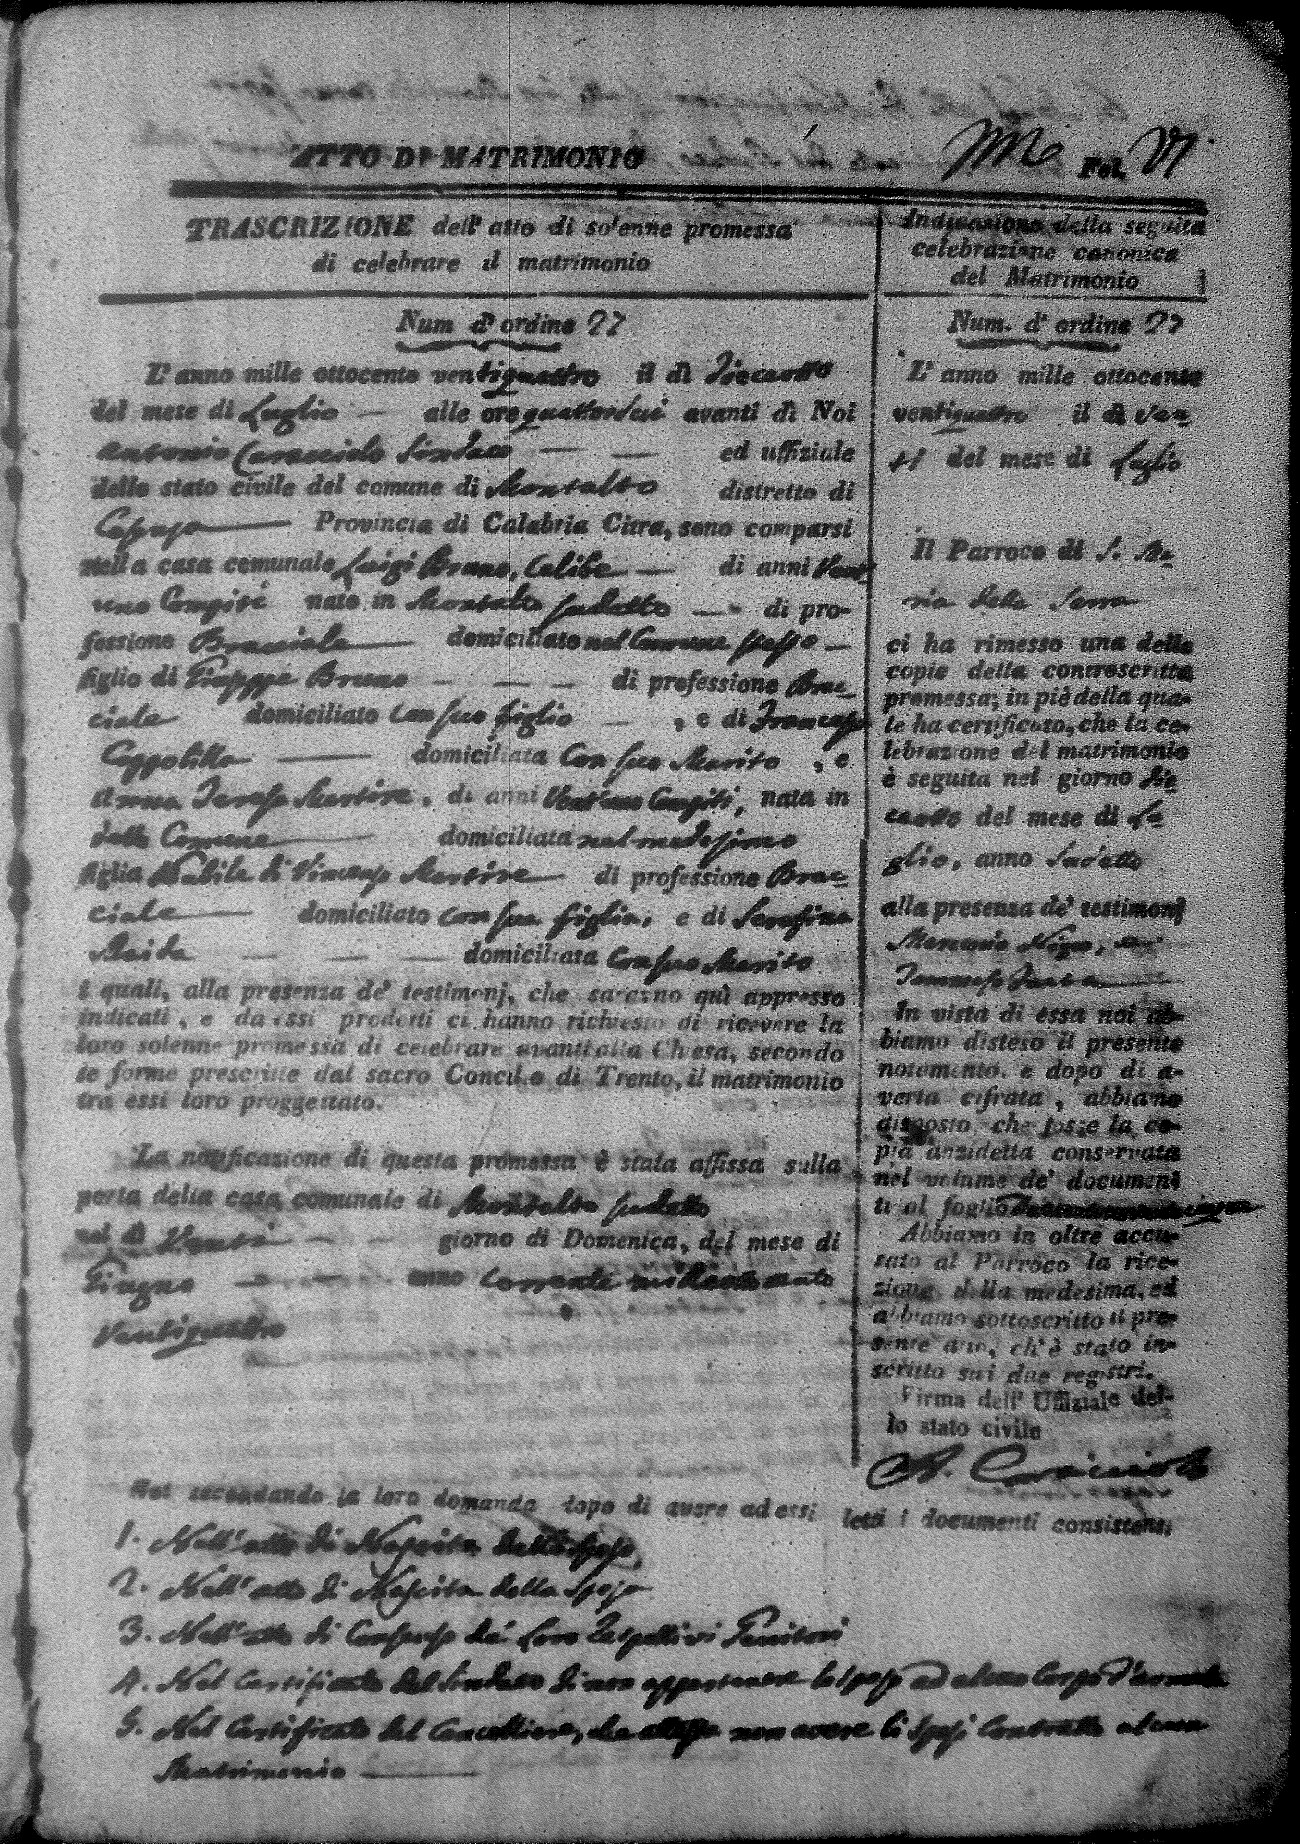 ATTO DI MATRIMONIO
Fol. VI
TRASCRIZIONE dell' atto di solenne promessa
di celebrare il matrimonio
Num d' ordine 27
L' anno mille ottocento ventiquattro il dì Dieceotto
del mese di Luglio — alle ore quattordeci avanti di Noi
Antonio Caracciolo Sindaco — — ed uffiziale
dello stato civile del comune di Montalto distretto di
Provincia di Calabria Citra, sono comparsi
nella casa comunale Luigi Bruno, Celibe — di anni Vent
uno Compiti nato in Montalto sudetto — di pro-
fessione Bracciale — domiciliato nel Comune stesso —
figlio di Giuseppe Bruno — — — di professione Brac-
ciale domiciliato con suo figlio — , e di Francesca
Coppolillo — domiciliata con suo Marito , e
Anna Teresa Martire, di anni Ventuno Compiti, nata in
detto Comune — domiciliata nel medesimo
figlia Nubile di Vincenzo Martire — di professione Brac-
ciale — domiciliato con sua figlia, e di Serafina
Maida — — — domiciliata con suo Marito
i quali, alla presenza de' testimonj, che saranno quì appresso
indicati, e da essi prodotti ci hanno richiesto di ricevere la
loro solenne promessa di celebrare avanti alla Chiesa, secondo
le forme prescritte dal sacro Concilio di Trento, il matrimonio
tra essi loro proggettato.
La notificazione di questa promessa è stata affissa sulla
porta della casa comunale di Montalto sudetto
nel dì Venti — — giorno di Domenica, del mese di
Giugno — — anno corrente mille ottocento
Ventiquattro
Indicazione della seguita
celebrazione canonica
del Matrimonio
Num. d' ordine 27
L' anno mille ottocento
ventiquattro il dì Ven-
ti del mese di Luglio
Il Parroco di S. Ma-
ria della Serra
ci ha rimesso una delle
copie della controscritta
promessa; in piè della qua-
le ha certificato, che la ce-
lebrazione del matrimonio
è seguita nel giorno Die
ceotto del mese di Lu-
glio, anno sudetto
alla presenza de' testimonj
Tommaso
In vista di essa noi ab-
biamo disteso il presente
notamento, e dopo di a-
verla cifrata, abbiamo
disposto, che fosse la co-
pia anzidetta conservata
nel volume de' documen-
ti al foglio
Abbiamo in oltre accu-
sato al Parroco la rice-
zione della medesima, ed
abbiamo sottoscritto il pre-
sente atto, ch' è stato in-
scritto sui due registri.
Firma dell' Uffiziale del-
lo stato civile
A. Caracciolo
Noi secondando la loro domanda dopo di avere ad essi letti i documenti consistenti
1. Nell' atto di Nascita dello sposo
2. Nell' atto di Nascita della Sposa
3. Nell' atto di Consenso de' Loro Rispettivi Genitori
4. Nel Certificato del Sindaco di non appartenere lo sposo ad alcun Corpo d'armata
5. Nel Certificato del Cancelliere, che attesta non avere li Sposi Contratto alcun
Matrimonio —